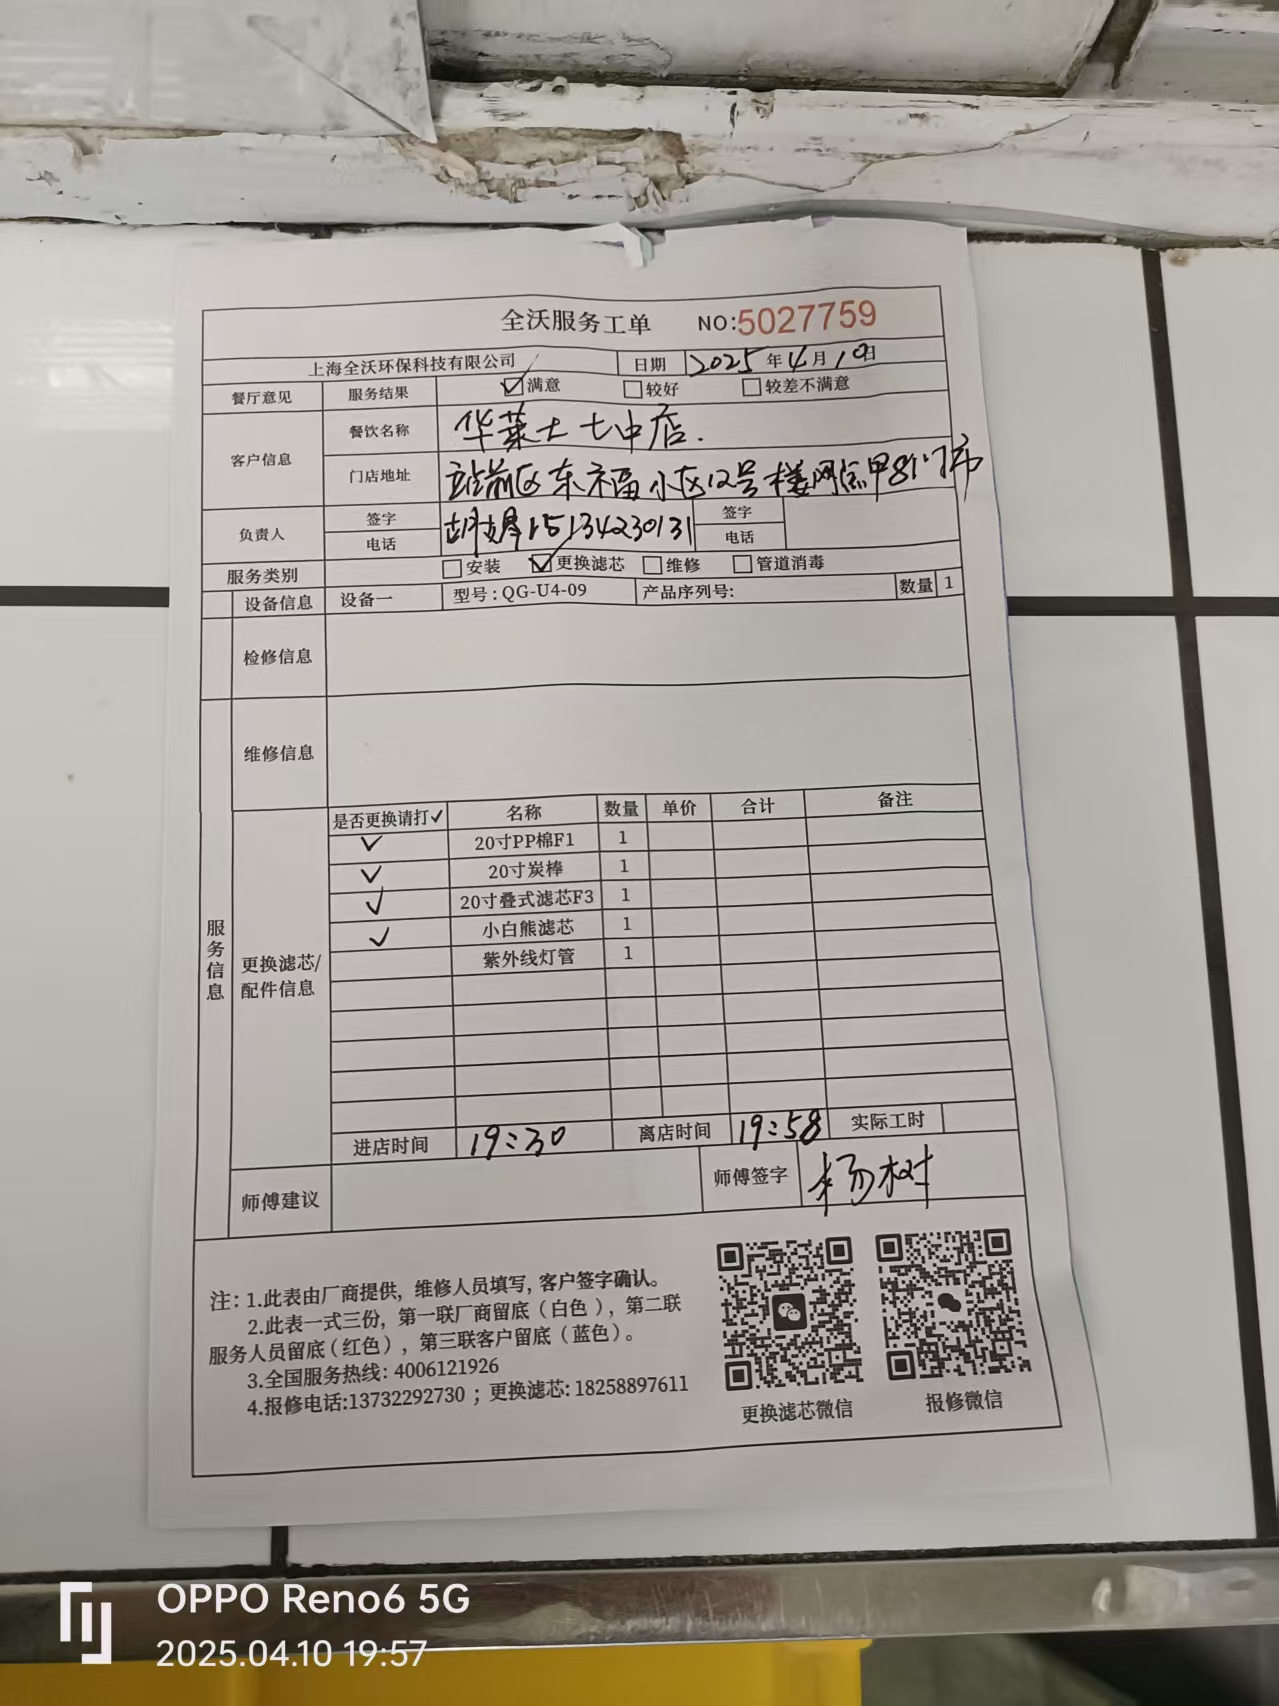 全沃服务工单 NO:5027759
上海全沃环保科技有限公司 日期 2025年4月10日
餐厅意见 服务结果 ☑满意 □较好 □较差不满意
客户信息 餐饮名称 华莱士七中店.
门店地址 站前区东福小区12号楼网点甲8门市
负责人 签字 电话 胡 15134230131 签字 电话
服务类别 □安装 ☑更换滤芯 □维修 □管道消毒
服务信息
设备信息 设备一 型号:QG-U4-09 产品序列号: 数量 1
检修信息
维修信息
更换滤芯/配件信息
是否更换请打✓ 名称 数量 单价 合计 备注
✓ 20寸PP棉F1 1
✓ 20寸炭棒 1
✓ 20寸叠式滤芯F3 1
✓ 小白熊滤芯 1
紫外线灯管 1
进店时间 19:30 离店时间 19:58 实际工时
师傅建议 师傅签字 杨树
注: 1.此表由厂商提供, 维修人员填写, 客户签字确认。
2.此表一式三份, 第一联厂商留底(白色), 第二联
服务人员留底(红色), 第三联客户留底(蓝色)。
3.全国服务热线: 4006121926
4.报修电话:13732292730 ; 更换滤芯: 18258897611
更换滤芯微信 报修微信
OPPO Reno6 5G
2025.04.10 19:57